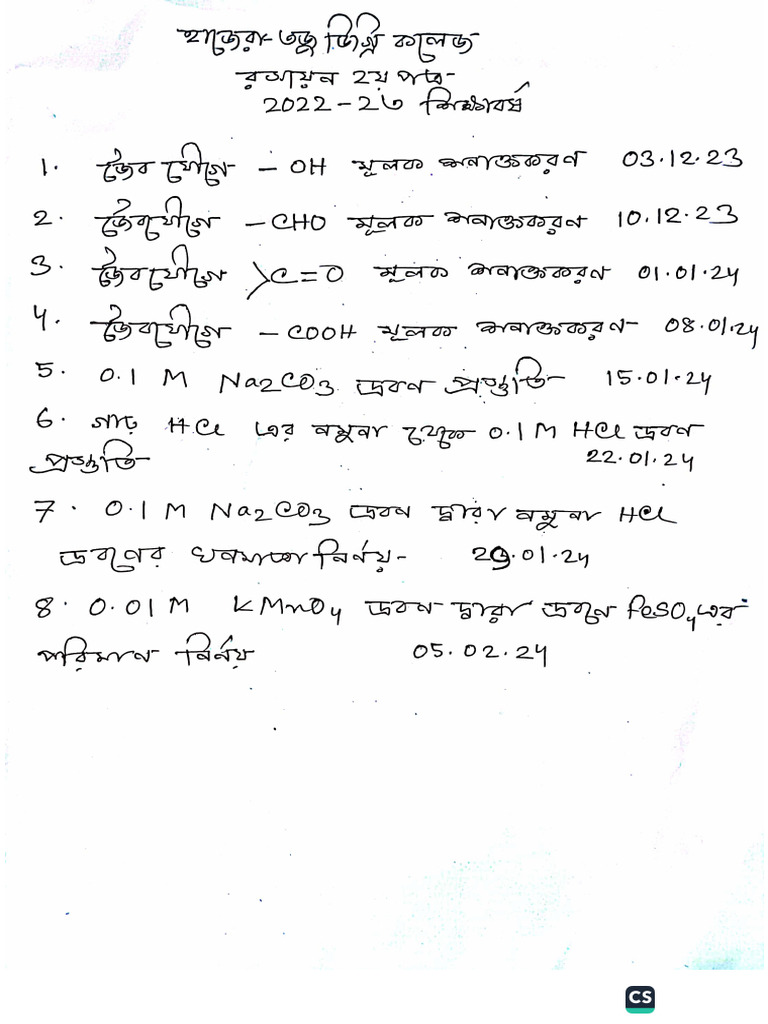 হাজেরা-তজু ডিগ্রি কলেজ
রসায়ন ২য় পত্র
2022-23 শিক্ষাবর্ষ
1. জৈব যৌগে -OH মূলক শনাক্তকরণ 03.12.23
2. জৈবযৌগে -CHO মূলক শনাক্তকরণ 10.12.23
3. জৈবযৌগে >C=O মূলক শনাক্তকরণ 01.01.24
4. জৈবযৌগে -COOH মূলক শনাক্তকরণ 08.01.24
5. 0.1 M Na2CO3 দ্রবণ প্রস্তুতি 15.01.24
6. গাঢ় HCl এর নমুনা থেকে 0.1M HCl দ্রবণ
প্রস্তুতি 22.01.24
7. 0.1 M Na2CO3 দ্রবণ দ্বারা নমুনা HCl
দ্রবণের ঘনমাত্রা নির্ণয়- 29.01.24
8. 0.01M KMnO4 দ্রবণ দ্বারা দ্রবণে FeSO4 এর
পরিমান নির্নয় 05.02.24
CS